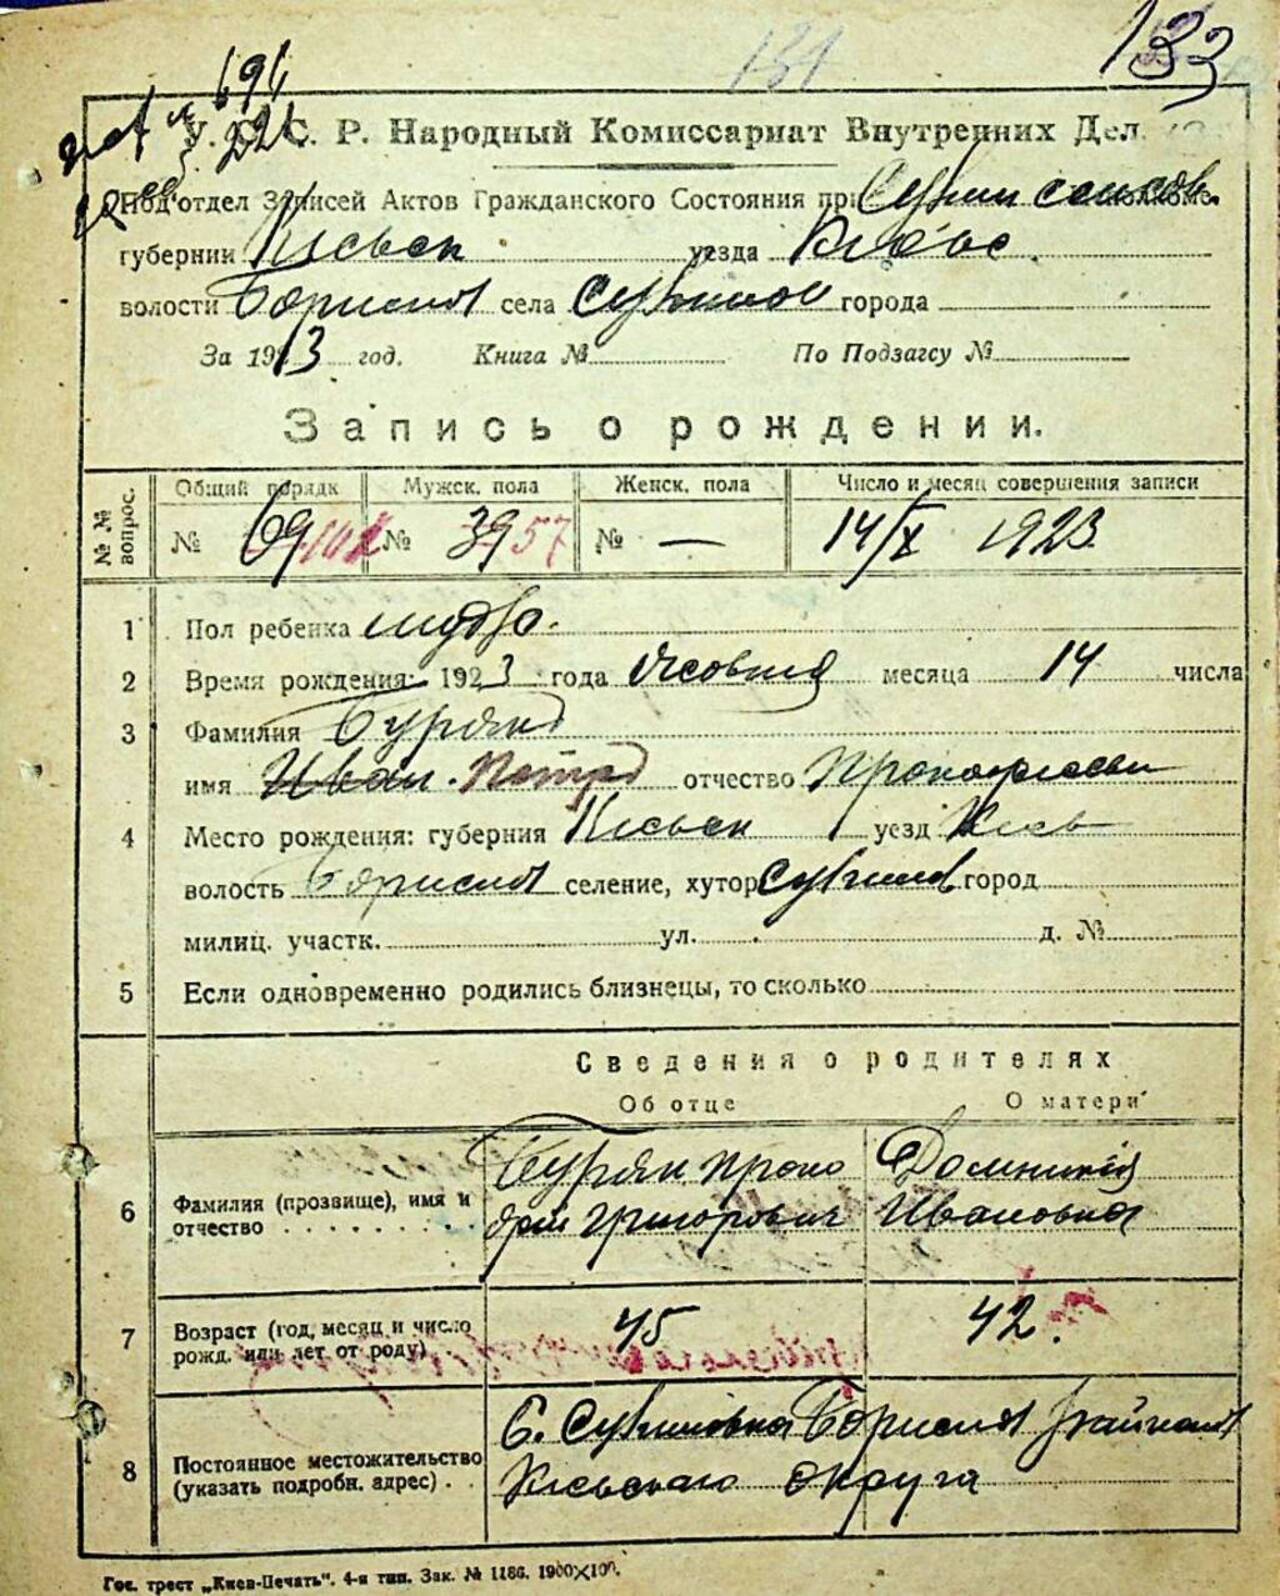 131
133
691
221
У. С. С. Р. Народный Комиссариат Внутренних Дел.
Подотдел Записей Актов Гражданского Состояния при
губернии Киевск уезда Киевс.
волости села города
За 1923 год. Книга № По Подзагсу №
Запись о рождении.
№№ вопрос.
Общий порядк Мужск. пола Женск. пола Число и месяц совершения записи
№ 69 102 № 39 57 № — 14/X 1923
1 Пол ребенка
2 Время рождения: 1923 года месяца 14 числа
3 Фамилия Буряк
имя Иван. Петро отчество Прокофиевич
4 Место рождения: губерния Киевск уезд Киев
волость селение, хутор город
милиц. участк. ул. д. №
5 Если одновременно родились близнецы, то сколько
Сведения о родителях
Об отце О матери
6 Фамилия (прозвище), имя и отчество
Буряк Проко
фий Григорович
Домникия
Ивановна
7 Возраст (год, месяц и число рожд. или лет от роду)
45 42.
8 Постоянное местожительство (указать подробн. адрес)
С. района
Киевского округа
Гос. трест „Киев-Печать“. 4-я тип. Зак. № 1186. 1900×100.